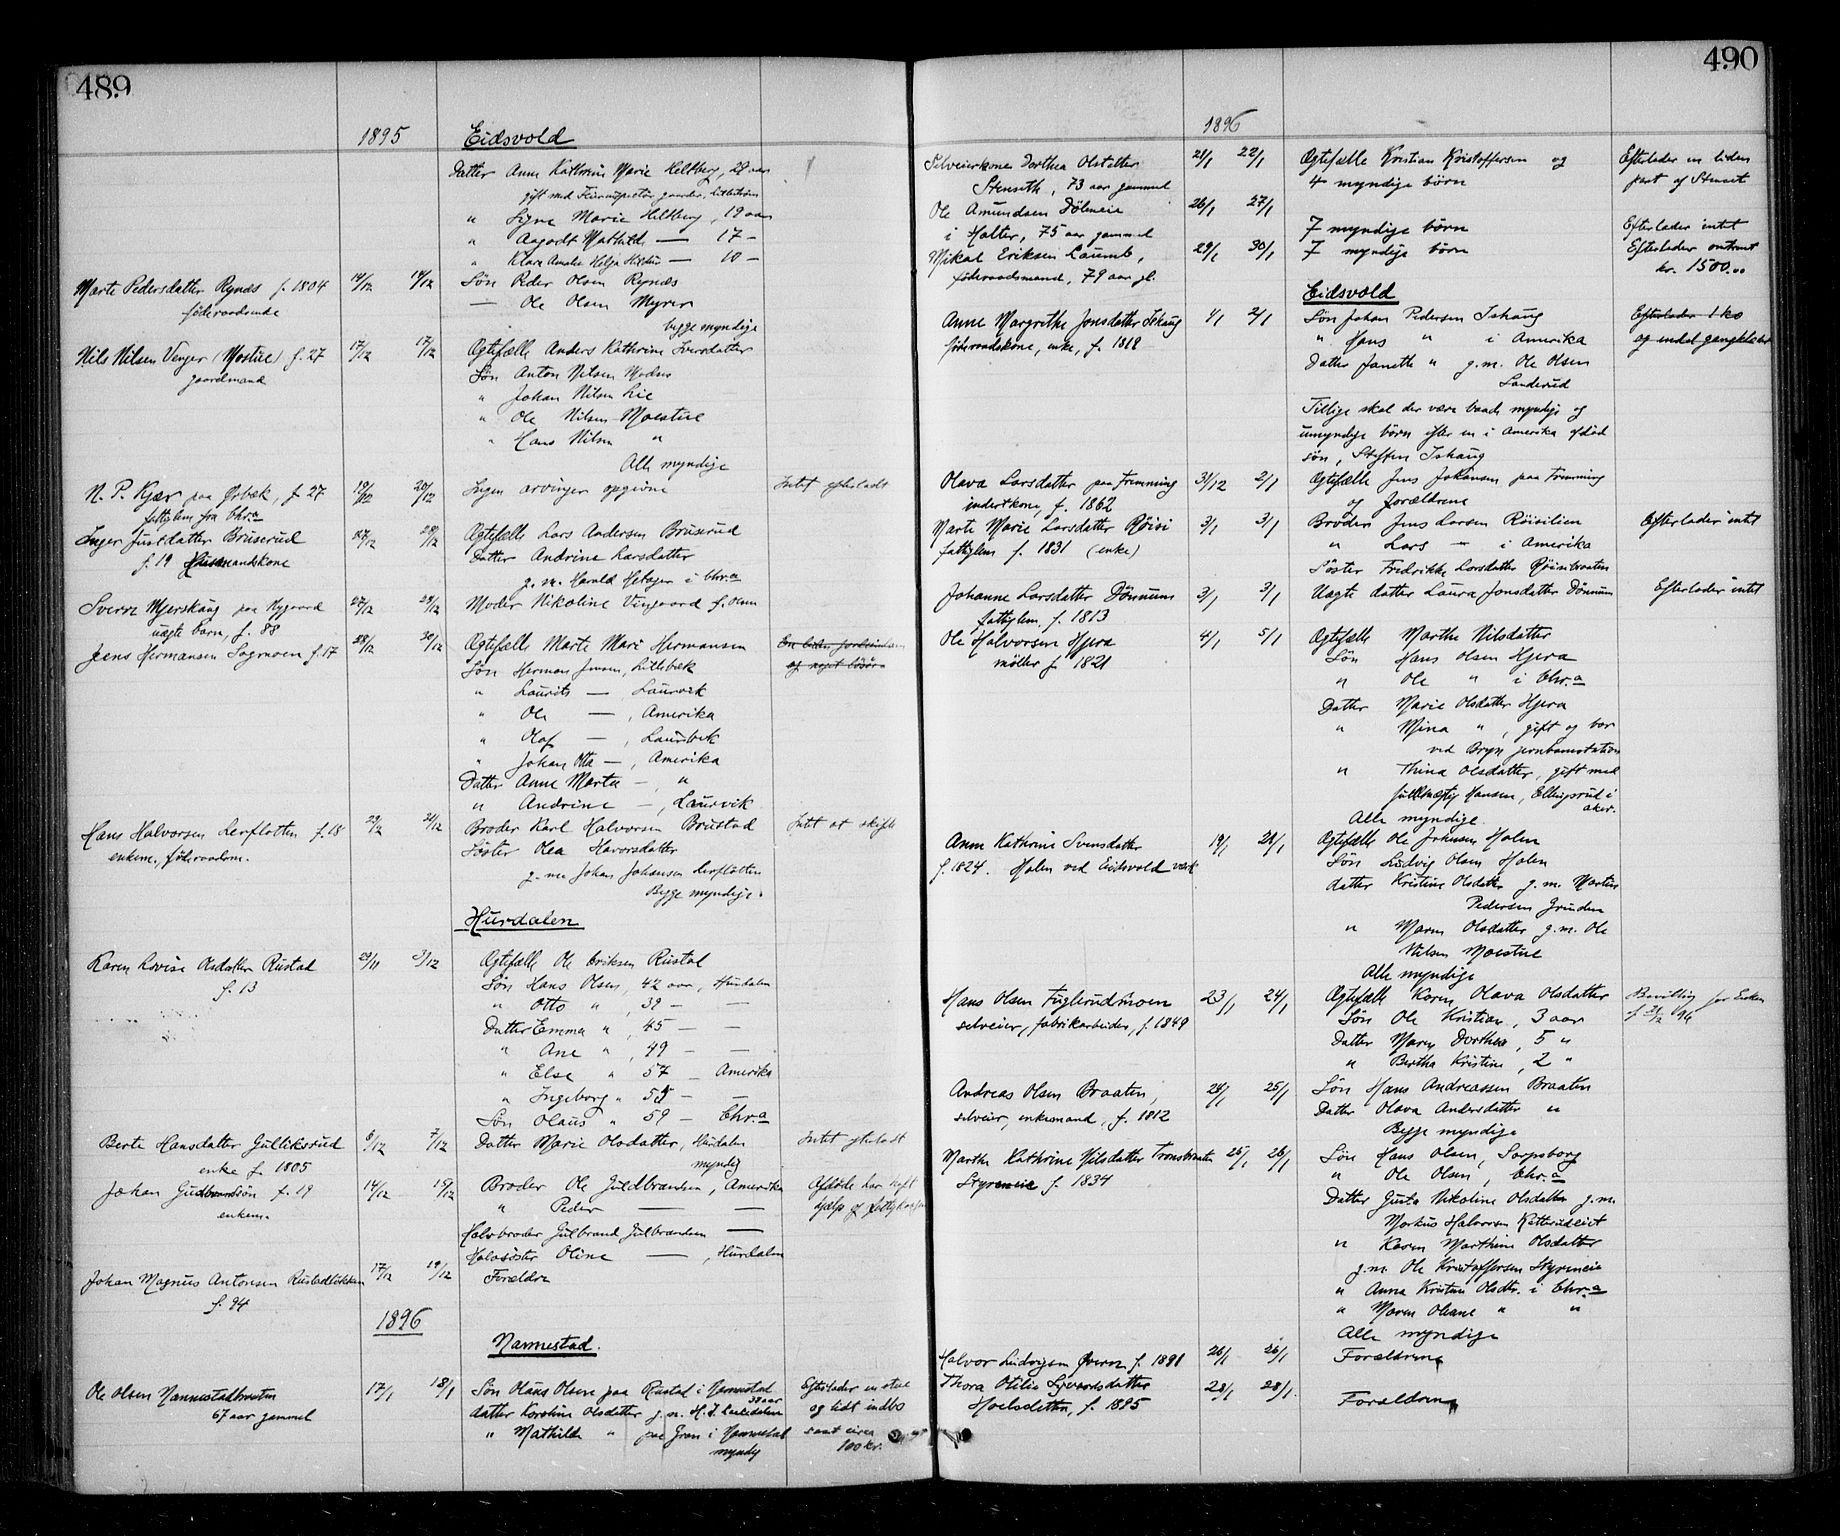 489
1895 Eidsvold
Datter Anne Kathrine Marie Heltberg, 28 aar
gift med
" Signe Marie Heltberg, 19 aar
" Aagodt Mathilde — 17 —
" Klara Amalie Helga — 10 —
Marte Pedersdatter Rynæs f. 1804 14/12 14/12 Søn Peder Olsen Rynæs
føderaadsenke — Ole Olsen Myrer
begge myndige
Nils Nilsen Venger (Mostue) f. 27 17/12 17/12 Ægtefælle Anders Kathrine Iversdatter
gaardmand Søn Anton Nilsen
" Johan Nilsen Lie
" Ole Nilsen Moestue
" Hans Nilsen "
Alle myndige
N. P. Kjær paa, f. 27 19/12 20/12 Ingen arvinger opgivne Intet efterladt
fattiglem fra Chr.a
Inger Justdatter Bruserud 27/12 28/12 Ægtefælle Lars Andersen Bruserud
f. 19 Husmandskone Datter Andrine Larsdatter
g. m. Harald i Chr.a
Sverre Mjerskaug paa Nygaard 27/12 28/12 Moder Nikoline Vingaard f. Olsen
uægte barn, f. 88
Jens Hermansen Sogmoen f. 17 28/12 30/12 Ægtefælle Marte Mari Hermansen En liden
Søn Herman Jensen, Lillebæk og noget løsøre
" Laurits — Laurvik
" Ole — , Amerika
" Olaf — , Laurvik
" Johan Otto — , Amerika
Datter Anne Marte — , "
" Andrine — , Laurvik
Hans Halvorsen Lerflatten f. 18 31/12 Broder Karl Halvorsen Brustad Intet at skifte
enkem., føderaadsm. Søster Olea Havorsdatter
g. m. Johan Johansen Lerflatten
Begge myndige.
Hurdalen
Karen Lovise Olsdatter Rustad 29/11 3/12 Ægtefælle Ole Eriksen Rustad
f. 13 Søn Hans Olsen, 42 aar, Hurdalen
" Otto " , 39 — —
Datter Emma " , 45 — —
" Ane " , 49 — —
" Else " , 57 — Amerika
" Ingeborg " 55 — —
Søn Olaus " 59 — Chr.a
Berte Hansdatter Gulliksrud 6/12 7/12 Datter Marie Olsdatter, Hurdalen Intet efterladt
enke f. 1805 myndig
Johan Guldbrandsøn f. 19 14/12 15/12 Broder Ole Guldbrandsen, Amerika Afdøde har havt
enkem. " Peder — — hjælp af fattigkassen
Halvbroder Gulbrand Gulbrandsen —
Halvsøster Oline — , Hurdalen
Johan Magnus Antonsen Rustadlökken 17/12 19/12 Forældre
f. 94
1896
Nannestad.
Ole Olsen Nannestadbraaten 17/1 18/1 Søn Olaus Olsen paa Rustad i Nannestad Efterlader en stue
67 aar gammel 38 aar
datter Karoline Olsdatter g. m. H. J. og lidt indbo
" Mathilde " paa Gran i Nannestad samt circa
myndig 100 kr.
490
1896
Selveierkone Dorthea Olsdatter 21/1 22/1 Ægtefælle Kristian Kristoffersen og Efterlader en liden
Stenseth, 73 aar gammel 4 myndige børn part af Stenset
Ole Amundsen Dølemeie 26/1 27/1
i Holter, 75 aar gammel 7 myndige børn Efterlader intet
Mikal Eriksen Laumb, 29/1 30/1 7 myndige børn Efterlader omtrent
føderaadsmand, 79 aar gl. kr. 1500..
Eidsvold
Anne Margrethe Jonsdatter Ishaug 1/1 2/1 Søn Johan Pedersen Ishaug Efterlader 1 ko
føderaadskone, enke, f. 1818 " Hans " i Amerika og endel gangklæder
Datter Janette " g. m. Ole Olsen
Sanderud
Tillige skal der være baade myndige og
umyndige børn efter en i Amerika afdød
søn, Steffen Ishaug
Olava Larsdatter paa Fremming 31/12 2/1 Ægtefælle Jens Johansen paa Fremming
inderstkone, f. 1862 og Forældrene
Marte Marie Larsdatter Røisi 3/1 3/1 Broder Jens Larsen Røisilien Efterlader intet
fattiglem f. 1831 (enke) " Lars — i Amerika
Söster Fredrikke Larsdatter Röisibraaten
Johanne Larsdatter Dönnum 3/1 3/1 Uægte datter Laura Jonsdatter Dönnum Efterlader intet
fattiglem, f. 1813
Ole Halvorsen Hjera 4/1 5/1 Ægtefælle Marthe Nilsdatter
møller f. 1821 Søn Hans Olsen Hjera
" Ole " i Chr.a
Datter Marie Olsdatter Hjera
" Mina " , gift og bor
ved Bryn jernbanestation
" Thina Olsdatter, gift med
fuldmægtig Hansen, Ellingsrud i
Aker.
Alle myndige.
Anne Kathrine Svensdatter 19/1 21/1 Ægtefælle Ole Johnsen Holen
f. 1824. Holen ved Eidsvold værk Søn Ludvig Olsen Holen
datter Kristine Olsdatter g. m. Martin
Pedersen Grinden
" Maren Olsdatter g. m. Ole
Nilsen Moestue
Alle myndige
Hans Olsen Fuglerudmoen 23/1 24/1 Ægtefælle Karen Olava Olsdatter Bevilling for Enken
selveier, fabrikarbeider, f. 1849 Søn Ole Kristian, 3 aar
Datter Maren Dorthea, 5 "
" Bertha Kristine, 2 "
Andreas Olsen Braaten, 24/1 25/1 Søn Hans Andreassen Braaten
selveier, enkemand, f. 1812 Datter Olava Andersdatter "
Begge myndige
Marthe Kathrine Nilsdatter Tronsbraaten 25/1 26/1 Søn Hans Olsen, Sarpsborg
Styreneie f. 1834 " Ole Olsen, Chr.a
Datter Gusta Nikoline Olsdatter g. m.
Markus Halvorsen
" Karen Marthine Olsdatter
g. m. Ole Kristoffersen Styreneie
" Anna Kristine Olsdtr. i Chr.a
" Maren Oleane " "
Alle myndige
Halvor Ludvigsen f. 1891 26/1 26/1 Forældrene
Thora Otilie Syverdsdatter 28/1 28/1 Forældrene
f. 1895